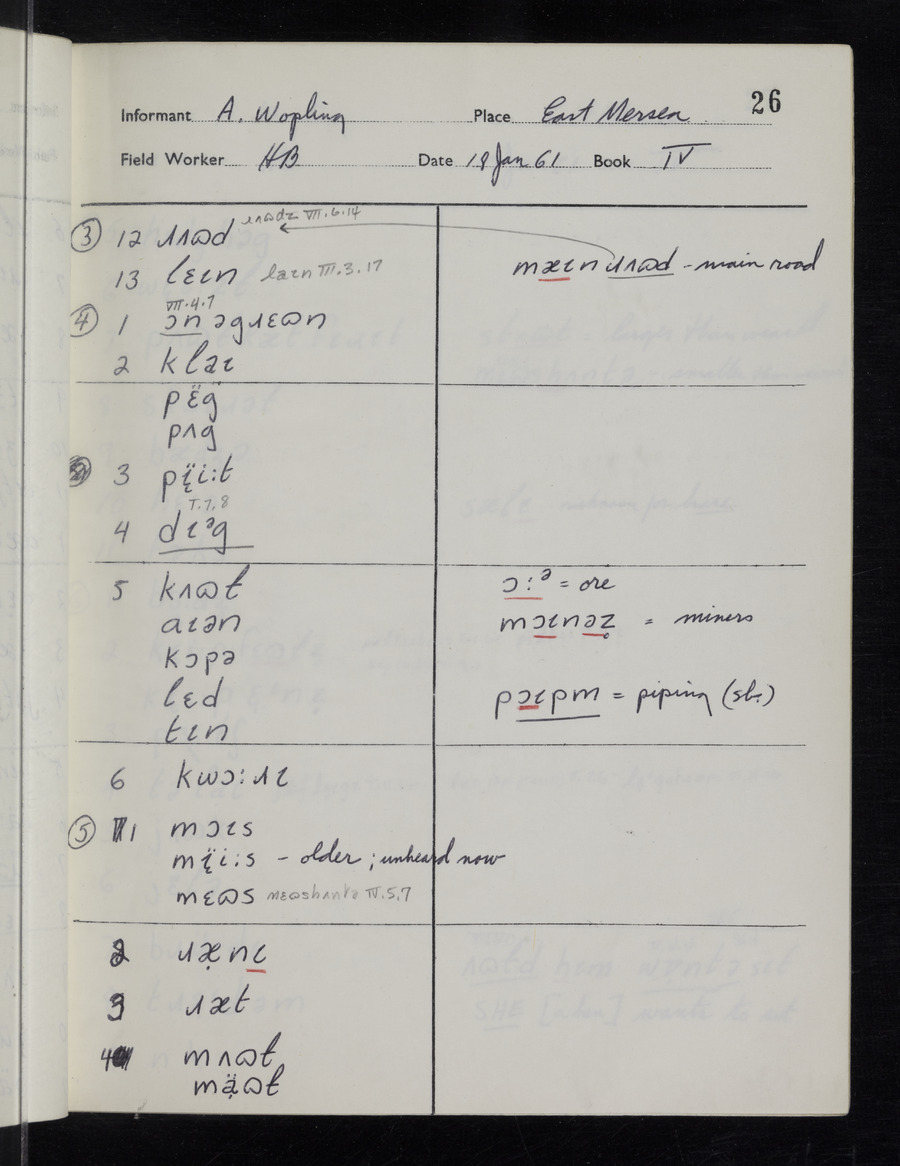 26
Informant A. Wopling Place East Mersea
Field Worker HB Date 18 Jan 61 Book IV
ɹʌɷdz VII.6.14
③ 12 ɹʌɷd
13 lɛɪn læɪn III.3.17 mæɪn ɹʌɷd - main road
VII.4.7
④ 1 ɔn əgɹɛɷn
2 klaɪ
pɛ̈g
pʌg
3 pɪ̞̈i:t
I.7,8
4 dɪᵊg
5 kʌɷt ɔ:ᵊ = ore
aɪən mɔɪnəz̥ = miners
kɔpə
lɛd pɔɪpm = piping (sb.)
tɪn
6 kwɔ:ɹɪ
⑤ 1 mɔɪs
mɪ̞̈i:s - older ; unheard now
mɛɷs mɛɷshʌntə IV.5,7
2 ɹæ̣nɪ
3 ɹæt
4 mʌɷt
mạ̈ɷt